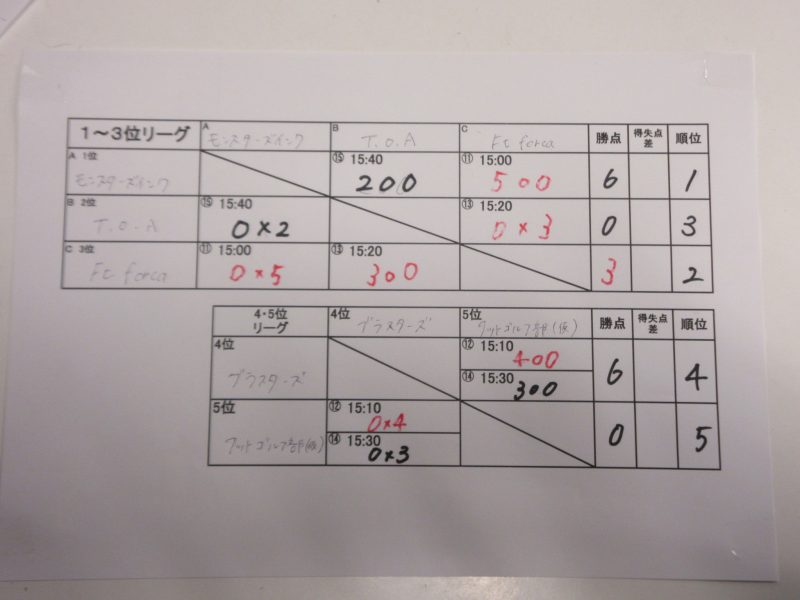 1～3位リーグ A モンスターズインク B T.O.A C Ft forca 勝点 得失点差 順位
A 1位 モンスターズインク ⑮ 15:40 2○0 ⑪ 15:00 5○0 6 1
B 2位 T.O.A ⑮ 15:40 0×2 ⑬ 15:20 0×3 0 3
C 3位 Ft forca ⑪ 15:00 0×5 ⑬ 15:20 3○0 3 2
4・5位リーグ 4位 ブラスターズ 5位 フットゴルフ部(仮) 勝点 得失点差 順位
4位 ブラスターズ ⑫ 15:10 4○0 6 4
⑭ 15:30 3○0
5位 フットゴルフ部(仮) ⑫ 15:10 0×4 0 5
⑭ 15:30 0×3